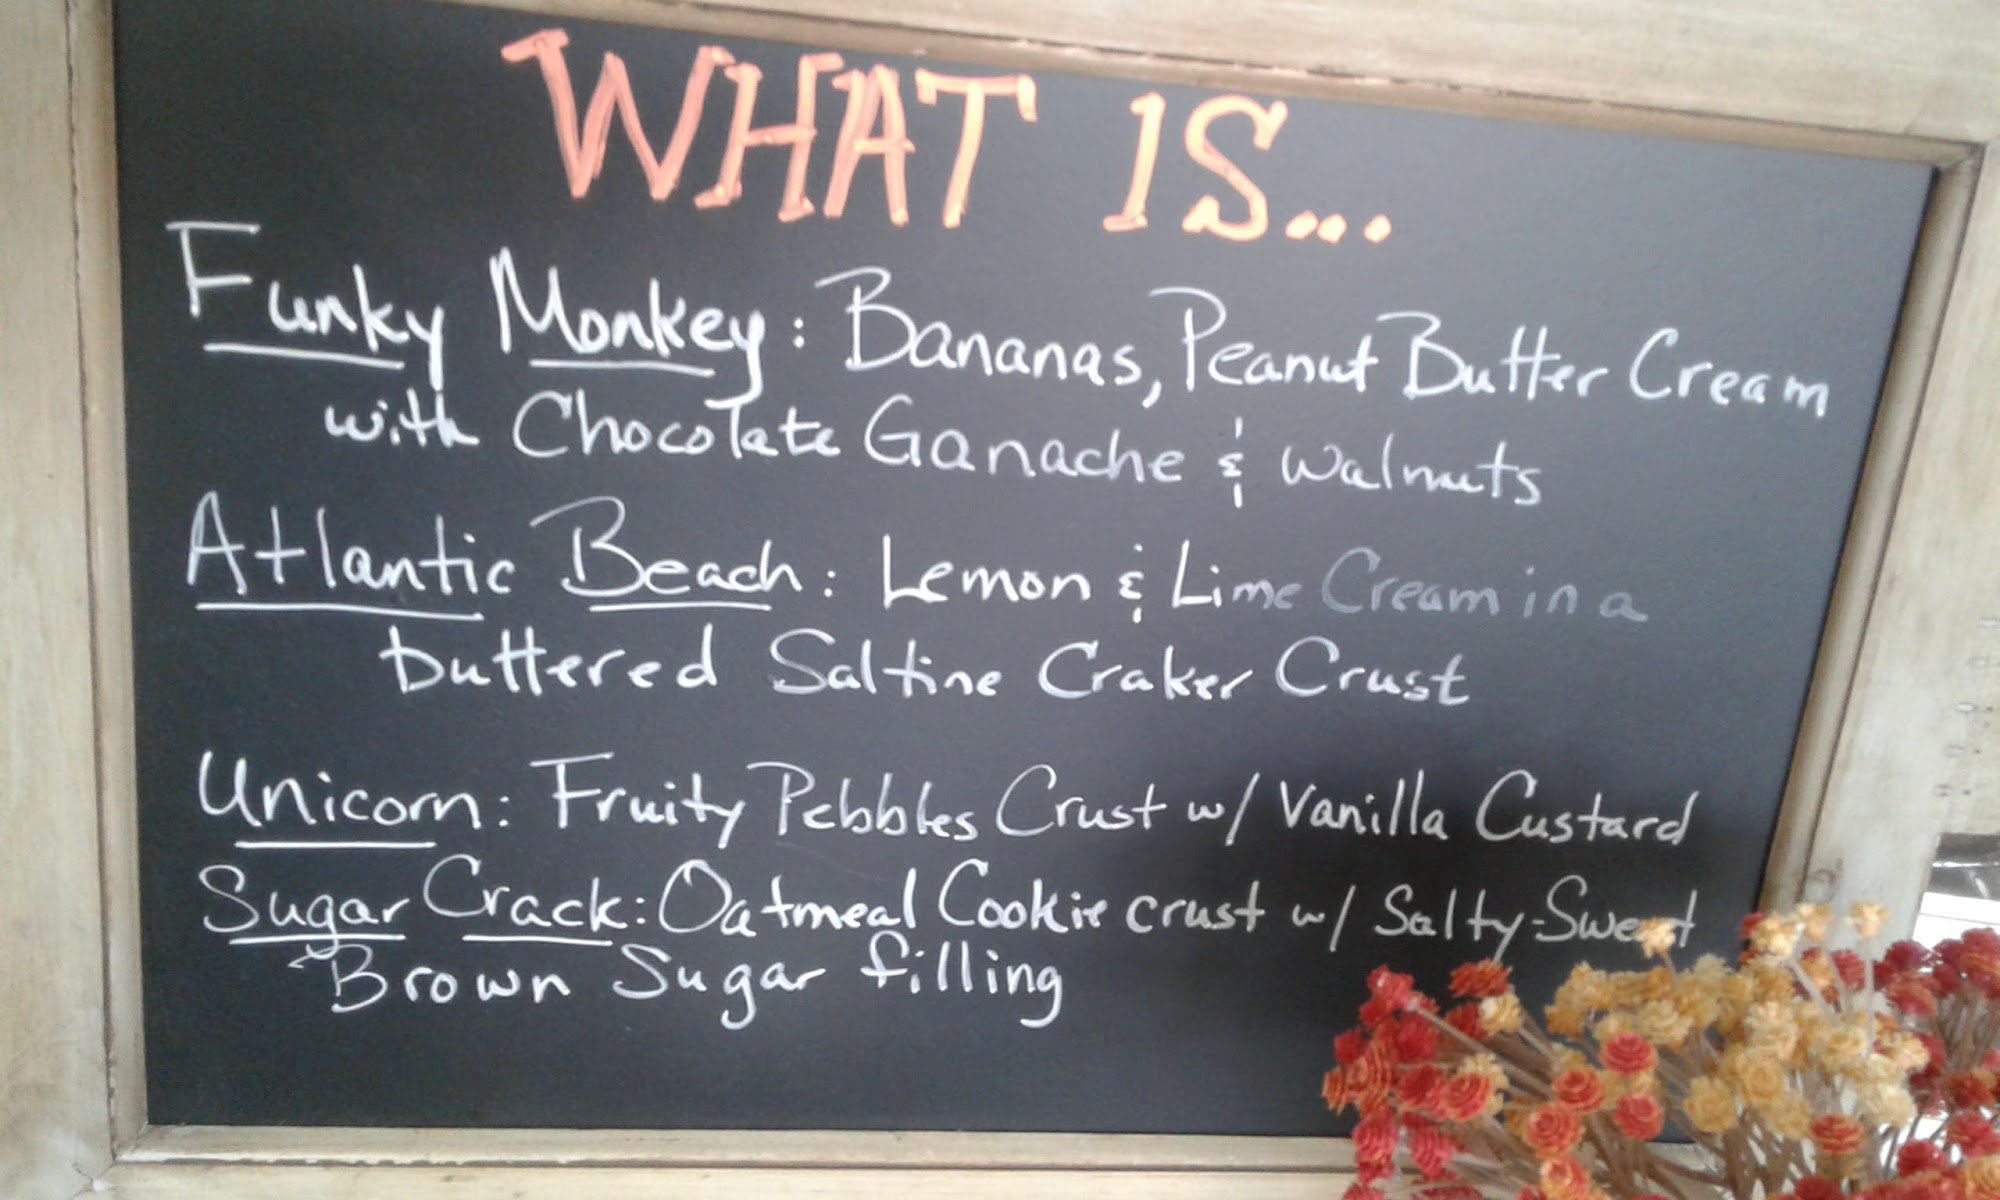 WHAT IS...
Funky Monkey: Bananas, Peanut Butter Cream
with Chocolate Ganache & Walnuts
Atlantic Beach: Lemon & Lime Cream in a
buttered Saltine Craker Crust
Unicorn: Fruity Pebbles Crust w/ Vanilla Custard
Sugar Crack: Oatmeal Cookie crust w/ Salty-Sweet
Brown Sugar filling